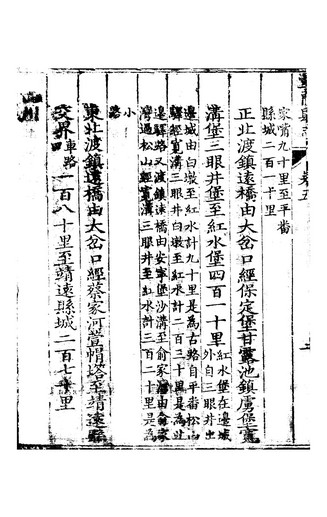 家嘴九十里至平番
縣城二百一十里
正北渡鎮遠橋由大岔口經保定堡甘露池鎮虜堡寬
溝堡三眼井堡至紅水堡四百一十里紅水堡在邊城
外自三眼井出
邊城由白墩至紅水計九十里是為古路自平番松山
驛經寬溝三眼井白墩至紅水計二百三十里是為
邊驛路又渡鎮橋由安寧堡沙溝至俞家由俞家
灣過松山經寬溝三眼井至紅水計三百二十里是為
小
路
東北渡鎮遠橋由大岔口經蔡家河帽塔至靖遠縣
交界車路一百八十里至靖遠縣城二百七十里